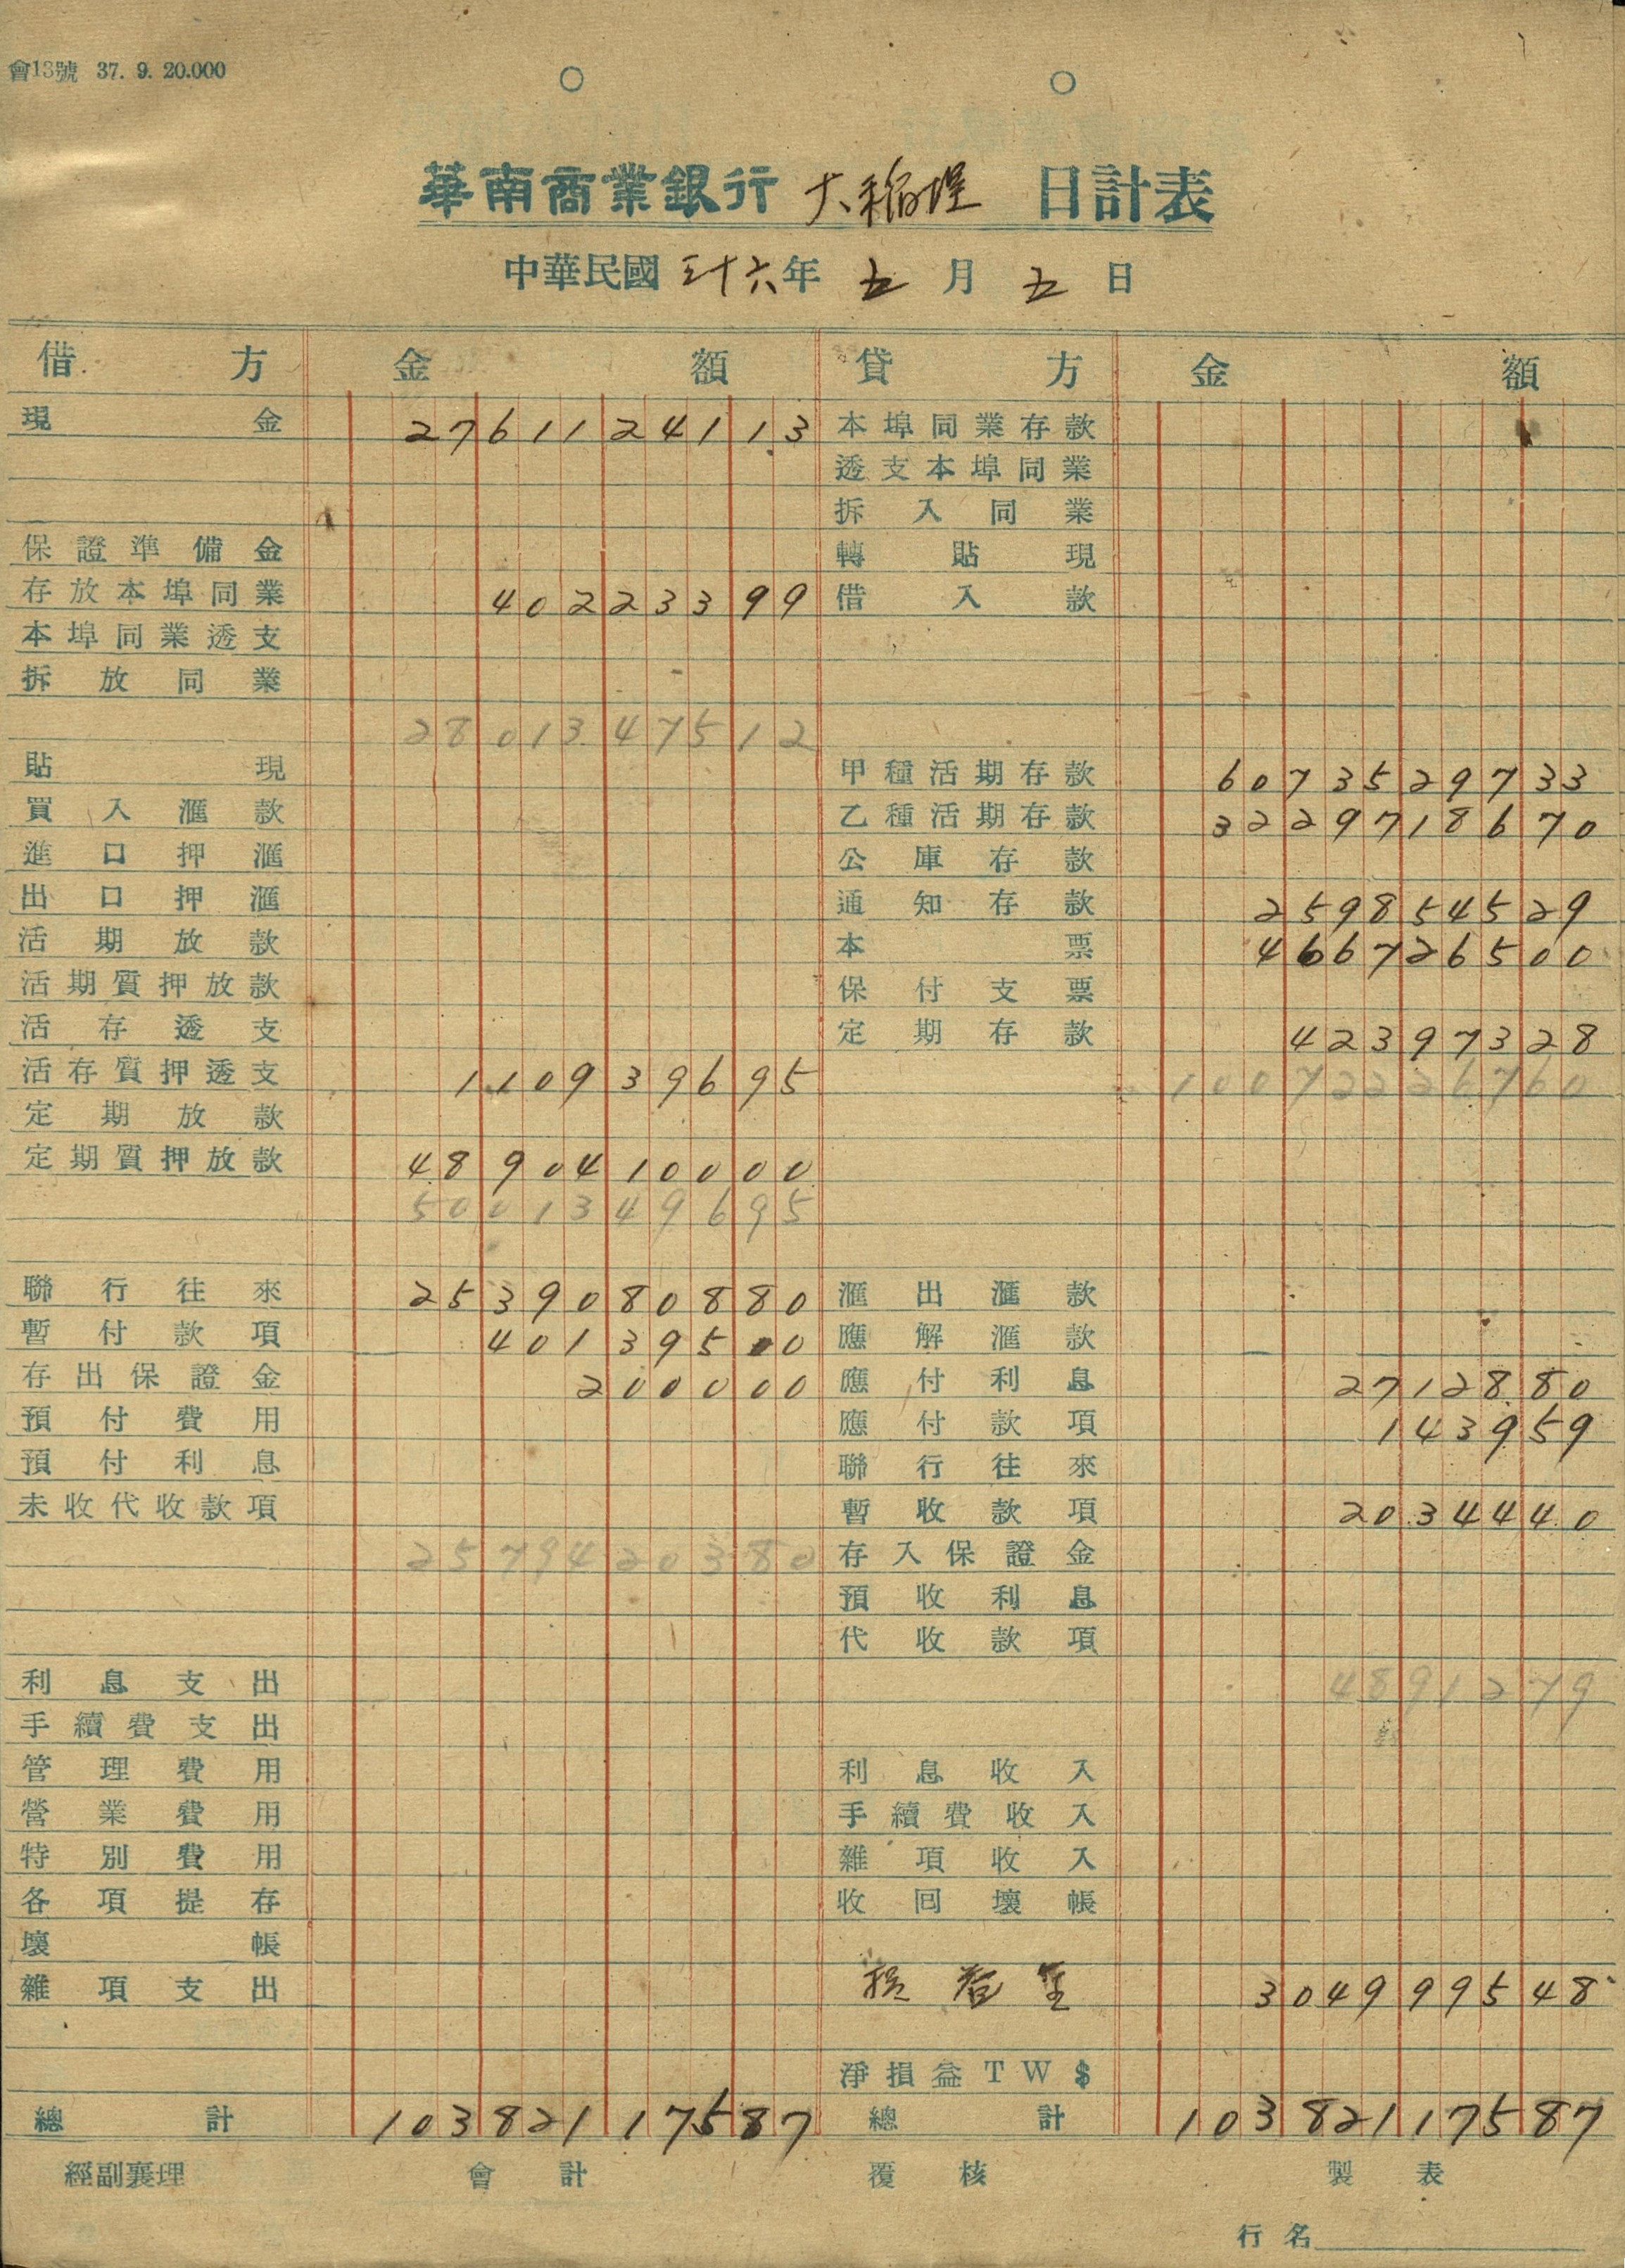 會13號 37. 9. 20.000
華南商業銀行 大稻埕 日計表
中華民國 三十六年 五月 五日
借方 金額 貸方 金額
現金 27611241 13 本埠同業存款
透支本埠同業
拆入同業
保證準備金 轉貼現
存放本埠同業 402233 99 借入款
本埠同業透支
拆放同業
28013475 12
貼現 甲種活期存款 60735297 33
買入滙款 乙種活期存款 32297186 70
進口押滙 公庫存款
出口押滙 通知存款 2598545 29
活期放款 本票 4667265 00
活期質押放款 保付支票
活存透支 定期存款 423973 28
活存質押透支 1109396 95 100722267 60
定期放款
定期質押放款 48904100 00
50013496 95
聯行往來 25390808 80 滙出滙款
暫付款項 401395 00 應解滙款
存出保證金 2000 00 應付利息 27128 80
預付費用 應付款項 1439 59
預付利息 聯行往來
未收代收款項 暫收款項 20344 40
25794203 80 存入保證金
預收利息
代收款項
利息支出 48912 79
手續費支出
管理費用 利息收入
營業費用 手續費收入
特別費用 雜項收入
各項提存 收回壞帳
壞帳
雜項支出 損益金 3049995 48
淨損益TW$
總計 103821175 87 總計 103821175 87
經副襄理 會計 覆核 製表
行名